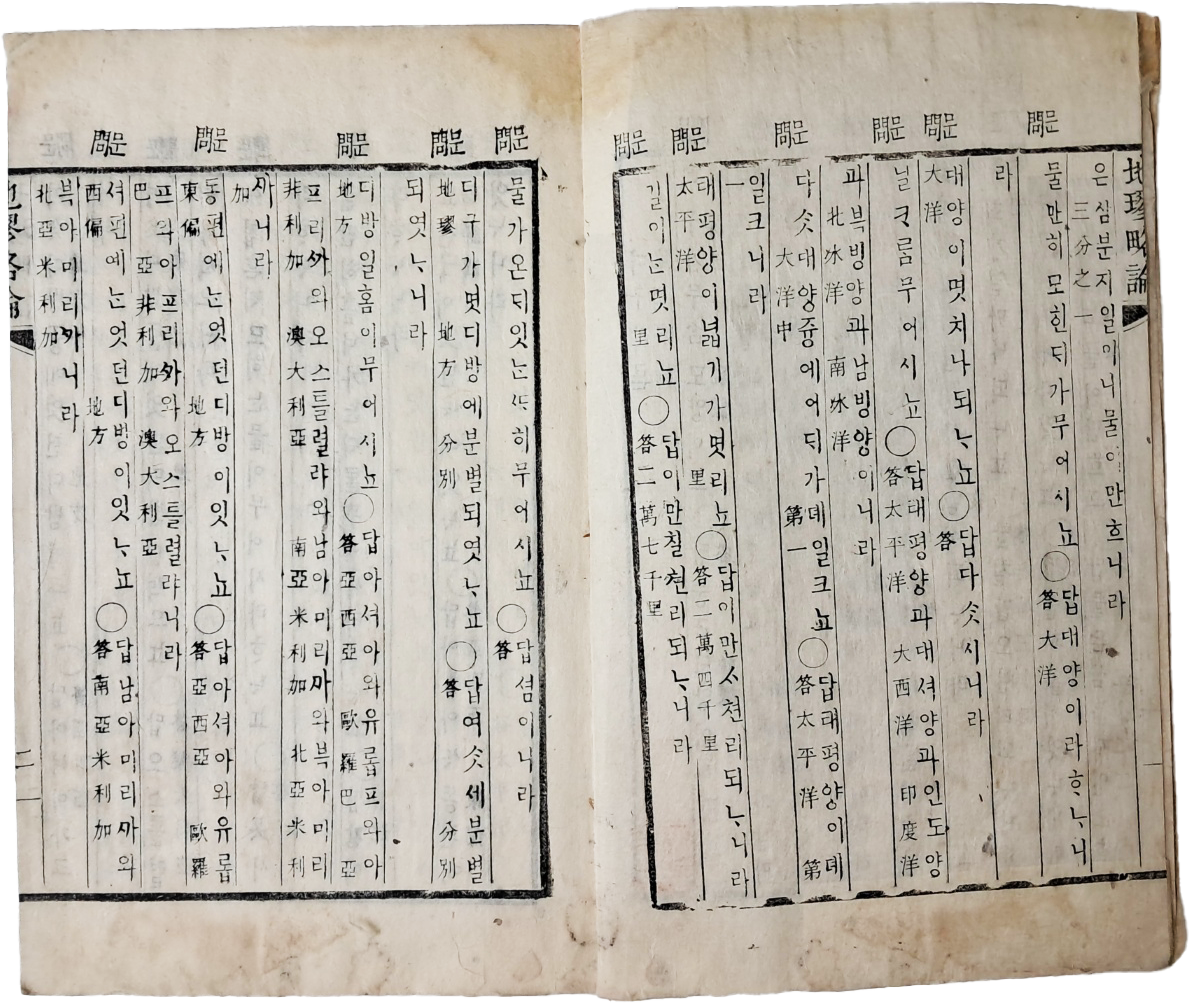 地璆略論
은삼분지일이니물이만흐니라
三分之一
문 물만히모힌ᄃᆡ가무어시뇨○답대양이라ᄒᆞᄂᆞ니
問 答大洋
라
문 대양이몃치나되ᄂᆞ뇨○답다ᄉᆞᆺ시니라
問 大洋 答
문 닐ᄏᆞ름무어시뇨○답태평양과대셔양과인도양
問 答太平洋 大西洋 印度洋
과븍빙양과남빙양이니라
北氷洋 南氷洋
문 다ᄉᆞᆺ대양즁에어ᄃᆡ가뎨일크뇨○답태평양이뎨
問 大洋中 第一 答太平洋 第
일크니라
一
문 태평양이넓기가몃리뇨○답이만ᄉᆞ쳔리되ᄂᆞ니라
問 太平洋 里 答二萬四千里
문 길이ᄂᆞᆫ몃리뇨○답이만칠쳔리되ᄂᆞ니라
問 里 答二萬七千里
一
문 물가온ᄃᆡ잇ᄂᆞᆫᄯᅡ히무어시뇨○답셤이니라
問 答
문 디구가몃디방에분별되엿ᄂᆞ뇨○답여ᄉᆞᆺ세분별
問 地璆 地方 分別 答 分別
되엿ᄂᆞ니라
문 디방일홈이무어시뇨○답아셔아와유롭프와아
問 地方 答亞西亞 歐羅巴 亞
프리ᄭᅡ와오스틀렬랴와남아미리ᄭᅡ와븍아미리
非利加 澳大利亞 南亞米利加 北亞米利
ᄭᅡ니라
加
문 동편에ᄂᆞᆫ엇던디방이잇ᄂᆞ뇨○답아셔아와유롭
問 東偏 地方 答亞西亞 歐羅
프와아프리ᄭᅡ와오스틀렬랴니라
巴 亞非利加 澳大利亞
문 셔편에ᄂᆞᆫ엇던디방이잇ᄂᆞ뇨○답남아미리ᄭᅡ와
問 西偏 地方 答南亞米利加
븍아미리ᄭᅡ니라
北亞米利加
地璆略論
二